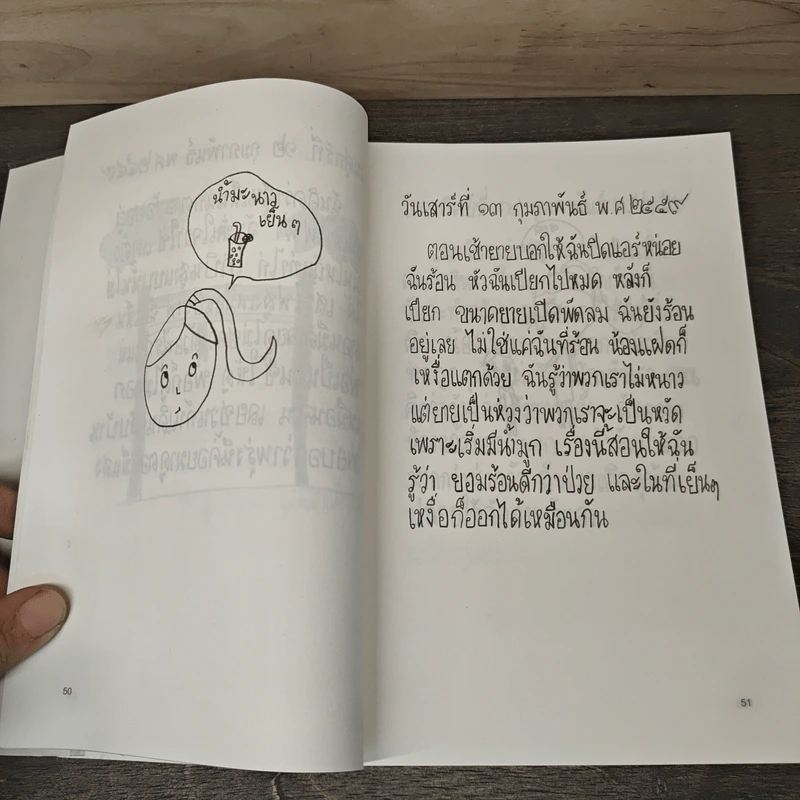 น้ำมะนาว
เย็นๆ
50
วันเสาร์ที่ ๑๓ กุมภาพันธ์ พ.ศ ๒๕๕๙
ตอนเช้ายายบอกให้ฉันปิดแอร์หน่อย
ฉันร้อน หัวฉันเปียกไปหมด หลังก็
เปียก ขนาดยายเปิดพัดลม ฉันยังร้อน
อยู่เลย ไม่ใช่แค่ฉันที่ร้อน น้องแฝดก็
เหงื่อแตกด้วย ฉันรู้ว่าพวกเราไม่หนาว
แต่ยายเป็นห่วงว่าพวกเราจะเป็นหวัด
เพราะเริ่มมีน้ำมูก เรื่องนี้สอนให้ฉัน
รู้ว่า ยอมร้อนดีกว่าป่วย และในที่เย็นๆ
เหงื่อก็ออกได้เหมือนกัน
51